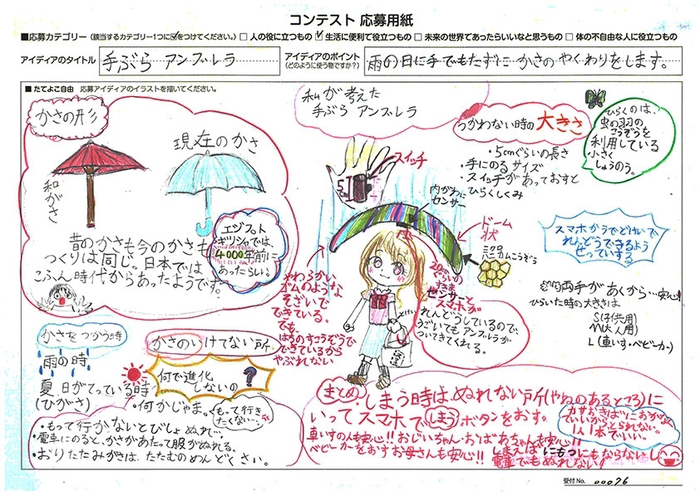 コンテスト 応募用紙
■応募カテゴリー(該当するカテゴリー1つに✓をつけてください。) □人の役に立つもの ☑生活に便利で役立つもの □未来の世界であったらいいなと思うもの □体の不自由な人に役立つもの
アイディアのタイトル
手ぶら アンブレラ
アイディアのポイント
(どのように使う物ですか?)
雨の日に手でもたずに かさの やくわりをします。
■たてよこ自由 応募アイディアのイラストを描いてください。
かさの形
現在のかさ
和がさ
昔のかさも今のかさも
つくりは同じ。日本では
こふん時代からあったようです。
エジプト
ギリシャでは、
4000年前に
あったらしい
私が考えた
手ぶら アンブレラ
スイッチ
内がわに
センサー
ドーム
状
つかわない時の大きさ
・5cmぐらいの長さ
・手にのるサイズ
・スイッチがあっておすと
ひらくしくみ
ひらくのは、
虫の羽の
こうぞうを
利用している
小さく
しゅうのう。
スマホからうでどけいで
れんどうできるよう
せっていする
ハニカムこうぞう
両手があくから…安心!
ひらいた時の大きさは
S(子供用)
M(大人用)
L(車いす・ベビーカー)
やわらかい
ゴムのような
そざいで
できている。
でも、
はちのすこうぞうで
できているから
やぶれない
センサーと
スマホが
れんどうしているので、
うごいてもアンブレラが
ついてきてくれる。
かさをつかう時
雨の時
夏 日がてっている時
(ひがさ)
かさのいけてない所
何で進化
しないの?
・何かじゃま。(もって行き
たくない…)
・もって行かないとびしょぬれに…
・電車にのると、かさがあたって服がぬれる。
・おりたたみがさは、たたむのめんどくさい。
まとめ しまう時はぬれない所(やねのあるところ)に
いってスマホでしまうボタンをおす。
車いすの人も安心!!おじいちゃん・おばあちゃんも安心!!
ベビーカーをおすお母さんも安心!!しまえばにもつにもならないし
電車でもぬれない!
かさおきばにおかなくて
いいからとられない。
1本でいい。
受付No. 00076